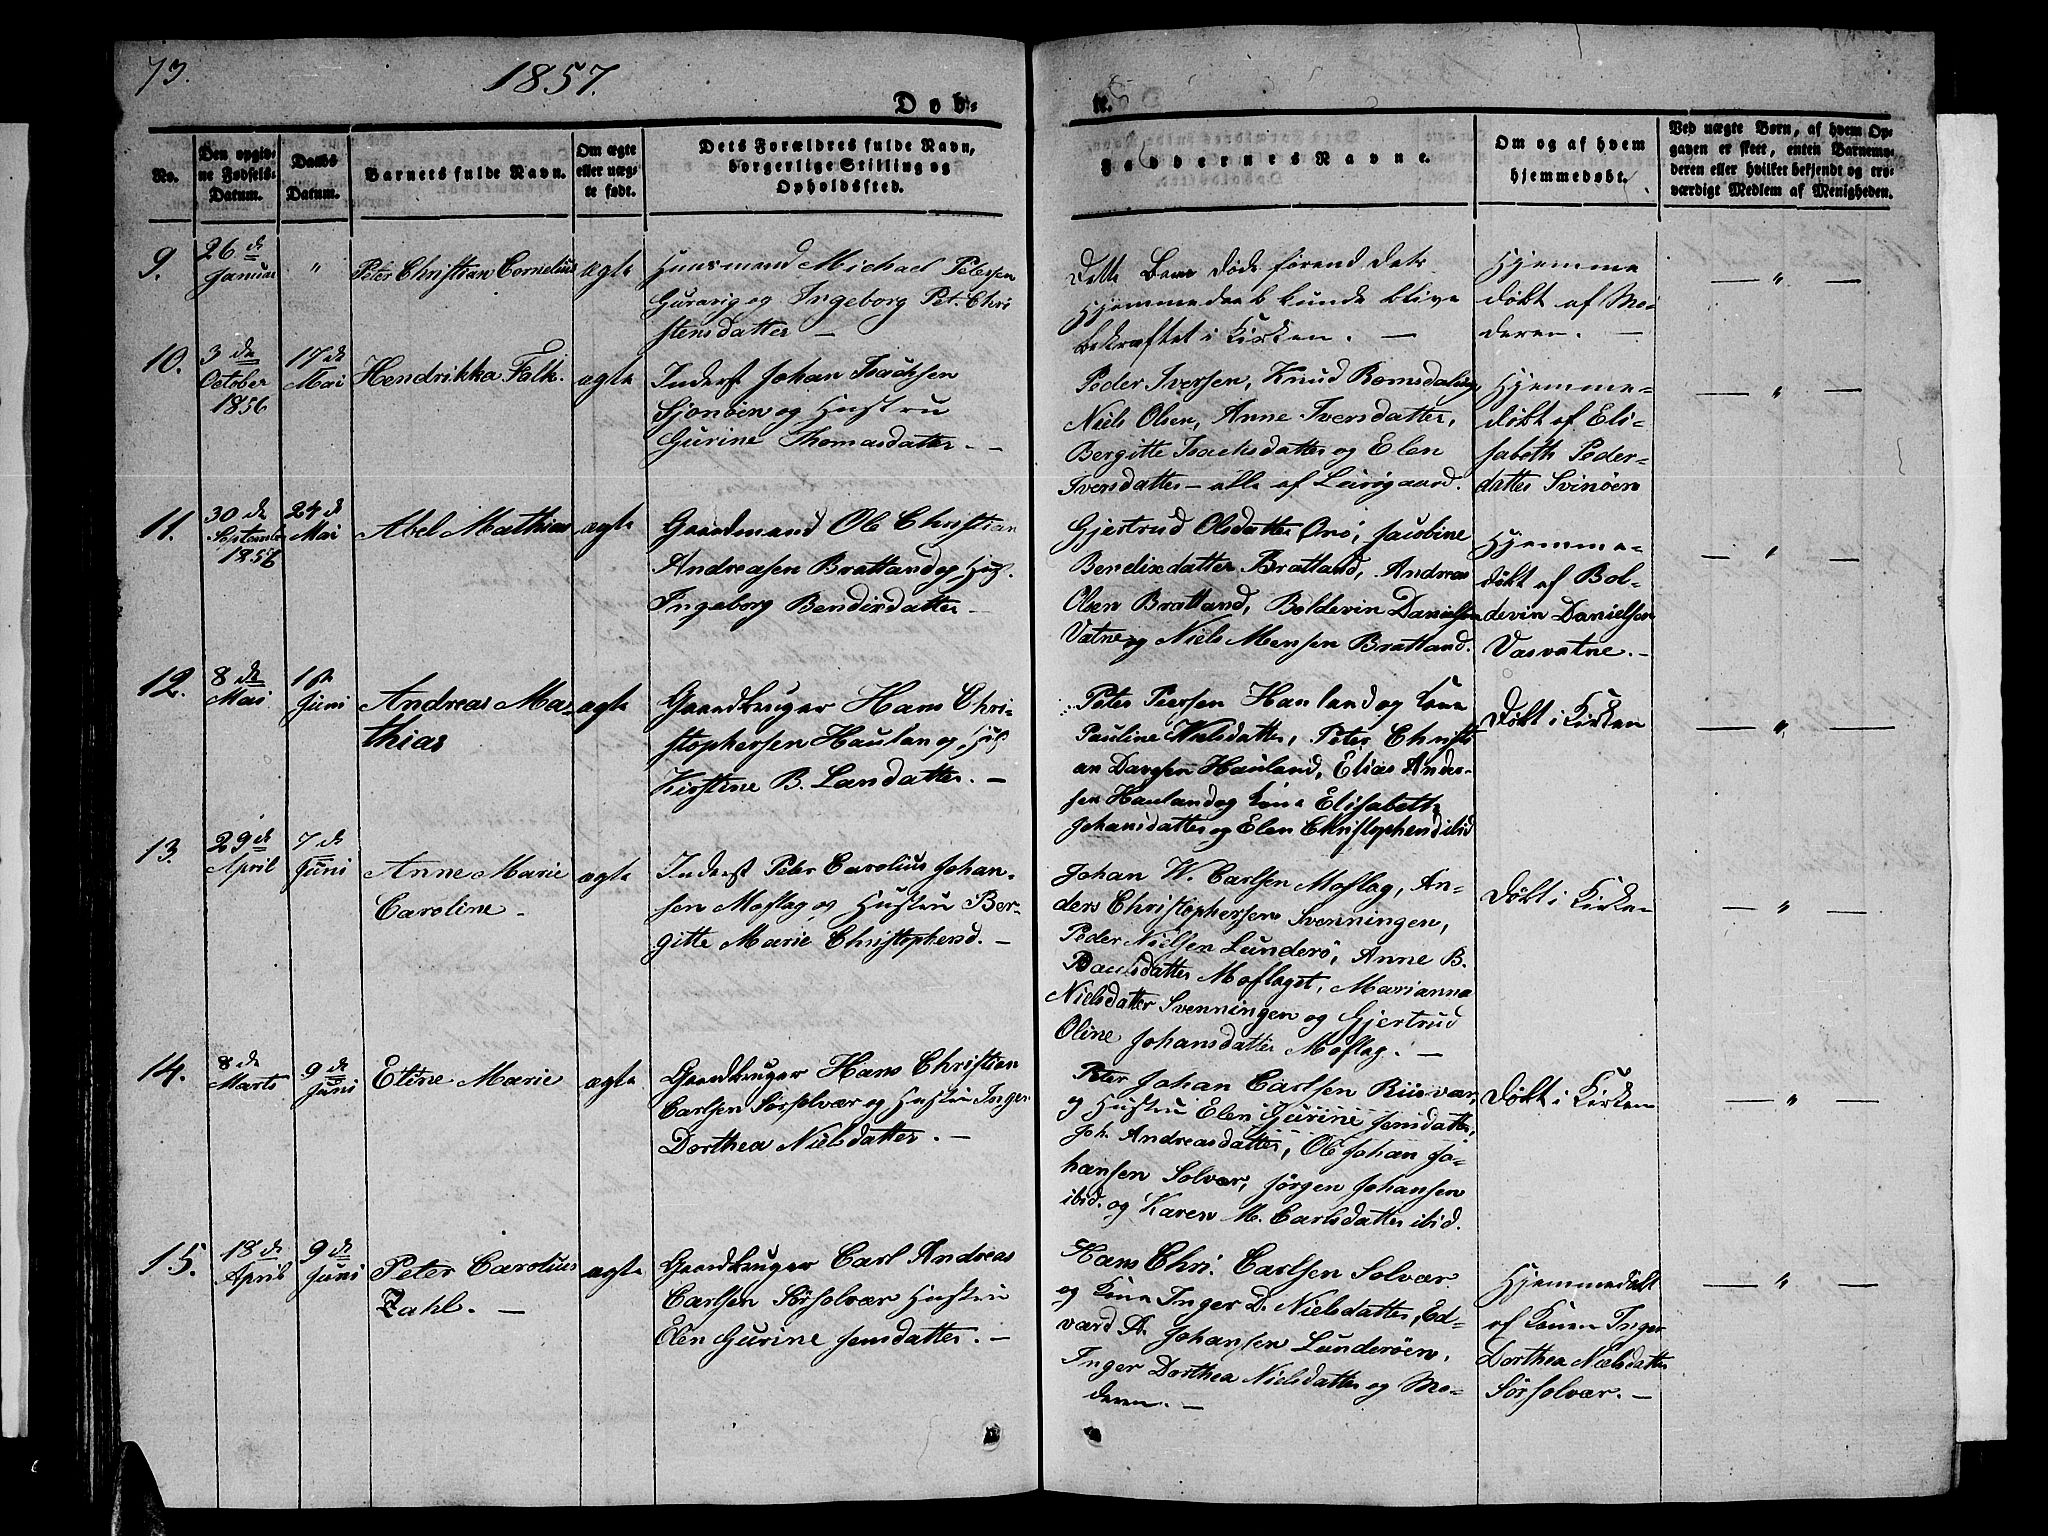 73.
1857.
Døb-
te.
No.
Den opgiv-
ne Fødsels-
Datum.
Daabs
Datum.
Barnets fulde Navn.
Om ægte
eller uæg-
te født.
Dets Forældres fulde Navn,
borgerlige Stilling og
Opholdssted.
Faddernes Navne.
Om og af hvem
hjemmedøbt.
Ved uægte Børn, af hvem Op-
gaven er skeet, enten Barnemo-
deren eller hvilket bekjendt og tro-
værdigt Medlem af Menigheden.
9.
26 de
Januar
"
Peter Christian Cornelius
ægte
Huusmand Michael Petersen
Guravig og Ingeborg Pet. Chri
stensdatter —
Dette Barn døde førend dets
Hjemmedaab kunde blive
bekræftet i Kirken. —
Hjemme
døbt af Mo-
deren. —
— " —
10.
3 de
October
1856
17 de
Mai
Hendrikka Falk.
ægte
Inderst Johan Isachsen
Sjonøen og Hustru
Gurine Thomasdatter. —
Peder Iversen, Knud Romsdaling
Niels Olsen, Anne Iversdatter,
Bergitte Isachsdatter og Elen
Iversdatter — alle af Leirøgaard.
Hjemme-
døbt af Eli-
sabeth Peder-
datter Svinøen
— " —
11.
30 de
September
1856
24 d
Mai
Abel Mathias
ægte
Gaardmand Ole Christian
Andreasen Brattland og Hus.
Ingeborg Bendixdatter —
Gjertrud Olsdatter Onø, Jacobine
Bendixdatter Bratland, Andreas
Olsen Bratland, Boldevin Danielsen
Vatne og Niels Monsen Bratland.
Hjemme-
døbt af Bol-
devin Danielsen
Vasvatne. —
— " —
12.
8 de
Mai
1ste
Juni
Andreas Ma-
thias
ægte
Gaardbruger Hans Chri-
stophersen Hauland og Hus
Kirstine B. Larsdatter. —
Peter Hauland og Kone
Pauline Nielsdatter, Peter Christi
an Hauland, Elias Ander-
sen Hauland og Kone Elisabeth
Johansdatter og Elen Christophersd ibid
Døbt i Kirken
— " —
13.
29 d
April
7 de
Juni
Anne Marie
Caroline —
ægte
Inderst Peter Carolius Johan-
sen Moflag og Hustru Ber-
gitte Marie Christophersd. —
Johan W. Carlsen Moflag, An-
ders Christophersen Svenningen,
Peder Nielsen Lunderø, Anne B.
Paulsdatter Moflaget, Marianna
Nielsdatter Svenningen og Gjertrud
Oline Johansdatter Moflag. —
Døbt i Kirken
— " —
14.
8 de
Marts
9 de
Juni
Eline Marie
ægte
Gaardbruger Hans Christian
Carlsen Sørsolvær og Hustru Inger
Dorthea Nielsdatter. —
Peter Johan Carlsen Riisvær,
og Hustru Elen Gurine Jensdatter,
Joh. Andreasdatter, Ole Johan Jo-
hansen Solvær, Jørgen Johansen
ibid. og Karen M. Carlsdatter ibid.
Døbt i Kirken
— " —
15.
18 de
April
9 de
Juni
Peter Carolius
Zahl. —
ægte
Gaardbruger Carl Andreas
Carlsen Sørsolvær Hustru
Elen Gurine Jensdatter. —
Hans Chri. Carlsen Solvær
og Kone Inger D. Nielsdatter, Ed-
vard A. Johansen Lunderøen,
Inger Dorthea Nielsdatter og Mo-
deren. —
Hjemmedøbt
af Konen Inger
Dorthea Nielsdatter
Sørsolvær. —
— " —